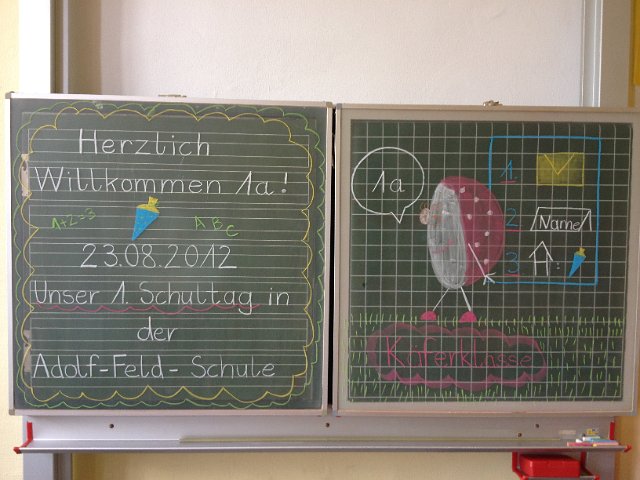 Herzlich
Willkommen 1a!
1+2=3
A B C
23.08.2012
Unser 1. Schultag in
der
Adolf-Feld-Schule
1a
1.
2.
Name
3.
H:
Käferklasse